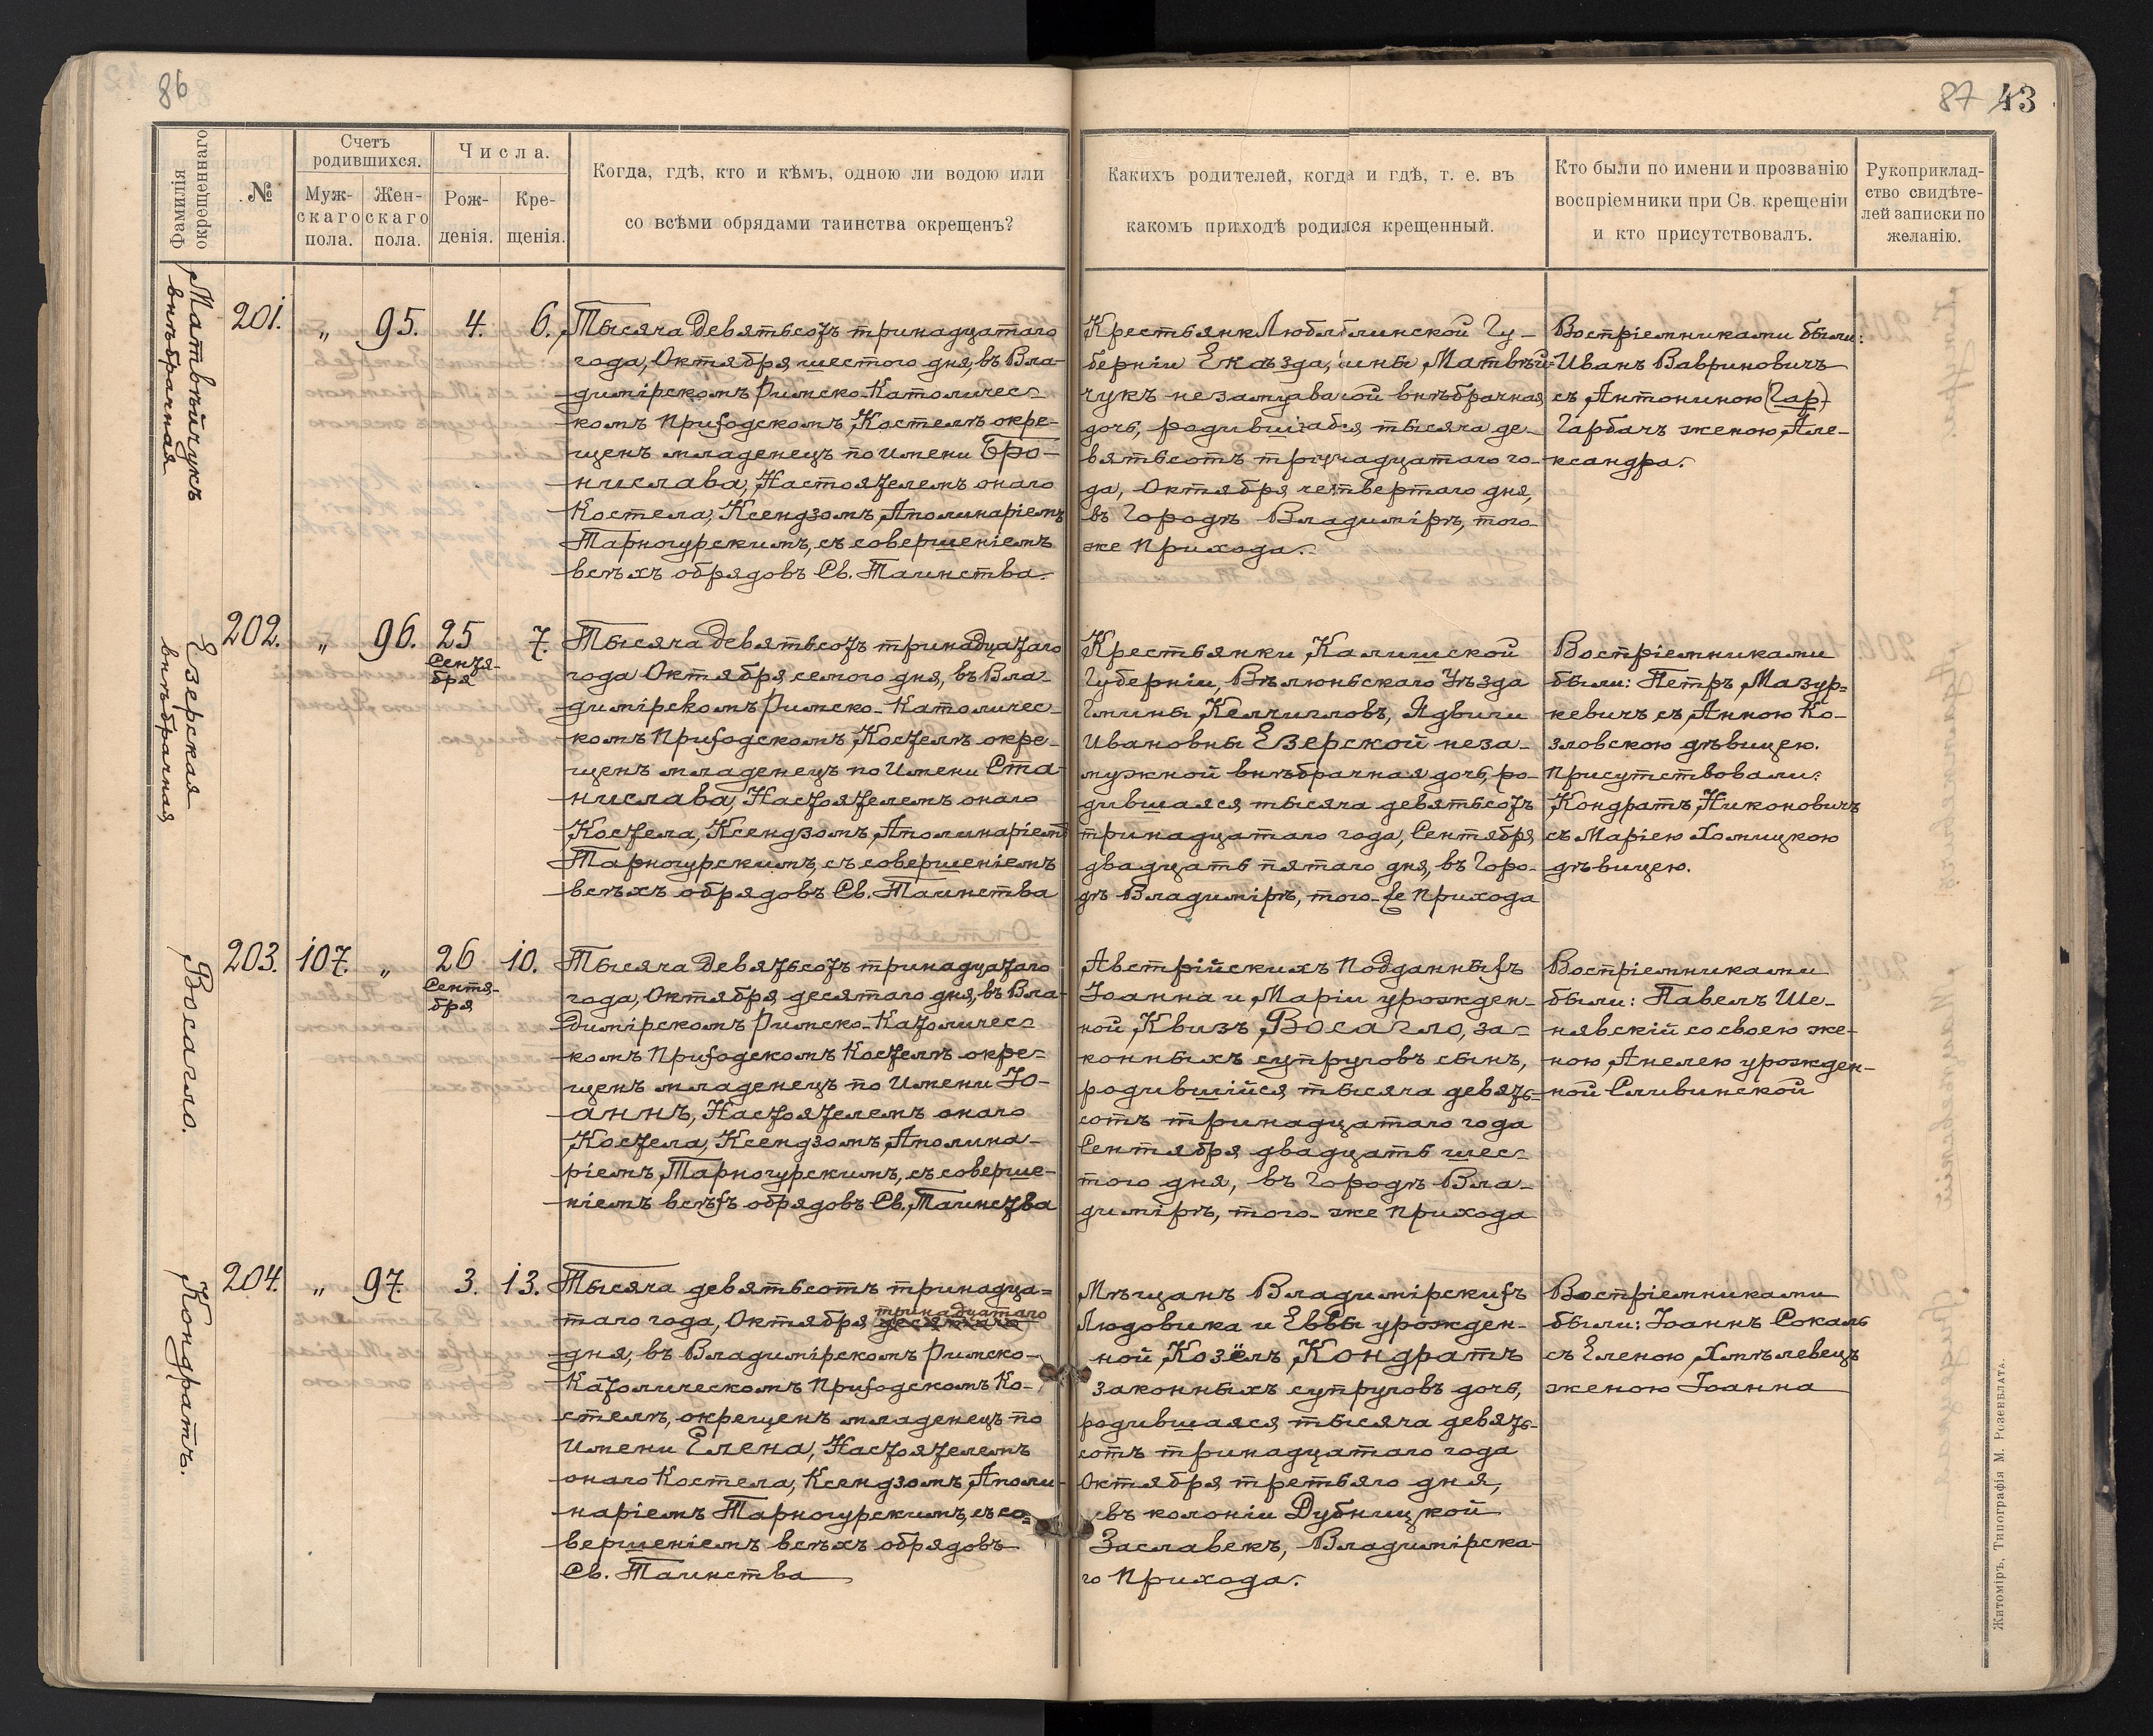 86
87 43
Фамилія
окрещеннаго
№
Счетъ
родившихся.
Муж-
скаго
пола.
Жен-
скаго
пола.
Числа.
Рож-
денія.
Кре-
щенія.
Когда, гдѣ, кто и кѣмъ, одною ли водою или
со всѣми обрядами таинства окрещенъ?
Какихъ родителей, когда и гдѣ, т. е. въ
какомъ приходѣ родился крещенный.
Кто были по имени и прозванію
воспріемники при Св. крещеніи
и кто присутствовалъ.
Рукоприклад-
ство свидѣте-
лей записки по
желанію.
Матвѣйчукъ
внѣбрачная
201. „ 95. 4. 6.
Тысяча девятьсотъ тринадцатаго
года, Октября шестого дня, въ Вла-
димірскомъ Римско-Католичес-
комъ Приходскомъ Костелѣ окре-
щенъ младенецъ по имени Бро-
нислава, Настоятелемъ онаго
Костела, Ксендзомъ Аполинаріемъ
Тарногурскимъ, съ совершеніемъ
всѣхъ обрядовъ Св. Таинства.
Гу-
берніи Матвѣй-
чукъ внѣбрачная
дочь, тысяча де-
вятьсотъ тринадцатаго го-
да, Октября четвертаго дня,
въ Городѣ Владимірѣ, того-
же Прихода.
Воспріемниками были:
Иванъ Вавриновичъ
съ Антониною (Гар)
Гарбачъ женою Але-
ксандра.
Езерская
внѣбрачная
202. „ 96. 25
Сентя-
бря
7.
Тысяча девятьсотъ тринадцатаго
года Октября седмого дня, въ Вла-
димірскомъ Римско-Католичес-
комъ Приходскомъ Костелѣ окре-
щенъ младенецъ по имени Ста-
нислава, Настоятелемъ онаго
Костела, Ксендзомъ Аполинаріемъ
Тарногурскимъ, съ совершеніемъ
всѣхъ обрядовъ Св. Таинства
Крестьянки Калишской
Губерніи, Вѣлюньскаго Уѣзда
Гмины Ядвиги
Ивановны Езерской неза-
мужной внѣбрачная дочь, ро-
дившаяся тысяча девятьсотъ
тринадцатаго года, Сентября
двадцать пятаго дня, въ Горо-
дѣ Владимірѣ, того-же Прихода
Воспріемниками
были: Петръ Мазур-
кевичъ съ Анною Ко-
зловскою дѣвицею.
Присутствовали:
Кондратъ Никоновичъ
съ Маріею Хомицкою
дѣвицею.
Восагло.
203. 107. „ 26
Сентя-
бря
10.
Тысяча девятьсотъ тринадцатаго
года, Октября десятаго дня, въ Вла-
димірскомъ Римско-Католичес-
комъ Приходскомъ Костелѣ окре-
щенъ младенецъ по имени Іо-
аннъ, Настоятелемъ онаго
Костела, Ксендзомъ Аполина-
ріемъ Тарногурскимъ, съ соверше-
ніемъ всѣхъ обрядовъ Св. Таинства
Австрійскихъ Подданныхъ
Іоанна и Маріи урожден-
ной Квизъ Восагло, за-
конныхъ супруговъ сынъ,
родившійся тысяча девять-
сотъ тринадцатаго года
Сентября двадцать шес-
того дня, въ Городѣ Вла-
димірѣ, того-же Прихода
Воспріемниками
были: Павелъ Ше-
нявскій со своею же-
ною Анелею урожден-
ной Сливинской
Кондратъ.
204. „ 97. 3. 13.
Тысяча девятьсотъ тринадца-
тринадцатаго
таго года, Октября десятаго
дня, въ Владимірскомъ Римско-
Католическомъ Приходскомъ Ко-
стелѣ, окрещенъ младенецъ по
имени Елена, Настоятелемъ
онаго Костела, Ксендзомъ Аполи-
наріемъ Тарногурскимъ, съ со-
вершеніемъ всѣхъ обрядовъ
Св. Таинства
Мѣщанъ Владимірскихъ
Людовика и Еввы урожден-
ной Козёлъ Кондратъ
законныхъ супруговъ дочь,
родившаяся тысяча девять-
сотъ тринадцатаго года
Октября третьяго дня,
въ колоніи Дубницкой
Заславекъ, Владимірска-
го Прихода.
Воспріемниками
были: Іоаннъ Сокалъ
съ Еленою Хмѣлевецъ
женою Іоанна
Житоміръ, Типографія М. Розенблата.